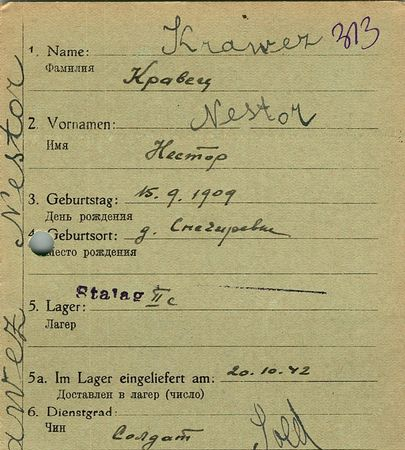 Krawez 313
1. Name:
Фамилия
Кравец
Nestor
2. Vornamen:
Имя
Нестор
3. Geburtstag: 15. 9. 1909
День рождения
4. Geburtsort: д. Снегиревка
Место рождения
Stalag II c
5. Lager:
Лагерь
5a. Im Lager eingeliefert am: 20. 10. 42
Доставлен в лагерь (число)
6. Dienstgrad:
Чин
Солдат Sold
Krawez Nestor